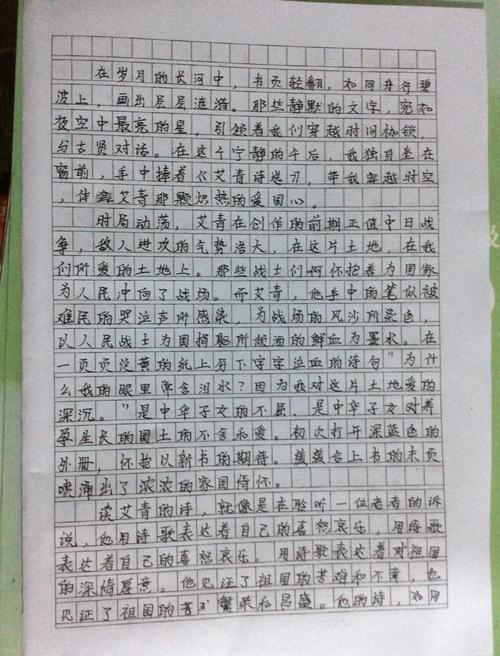 在岁月的长河中，书页轻翻，如同舟行碧
波上，画出层层涟漪。那些静默的文字，宛如
夜空中最亮的星，引领着我们穿越时间枷锁，
与古贤对话。在这个宁静的午后，我独自坐在
窗前，手中捧着《艾青诗选》，带我穿越时空，
体会艾青那颗炽热的爱国心。
时局动荡，艾青在创作的前期正值中日战
争，敌人进攻的气势浩大，在这片土地，在我
们所爱的土地上。那些战士们怀抱着为国家
为人民冲向了战场。而艾青，他手中的笔似被
难民的哭泣声所感染，为战场的风沙所染色，
以人民战士为国捐躯所倾洒的鲜血为墨水。在
一页页泛黄的纸上写下字字泣血的诗句"为什
么我的眼里常含泪水？因为我对这片土地爱的
深沉。"是中华子女的不屈、是中华子女对养
育生长的国土的不舍和爱。初次打开深蓝色的
外册，怀抱以新书的期待。缓缓合上书的末页
喷涌出了浓浓的家国情怀。
读艾青的诗，就像是在聆听一位老者的诉
说，他用诗歌表达着自己的喜怒哀乐，用诗歌
表达着自己的喜怒哀乐，用诗歌表达着对祖国
的深情厚意。他见证了祖国的苦难和不幸，也
见证了祖国的繁荣和昌盛。他的诗，如同